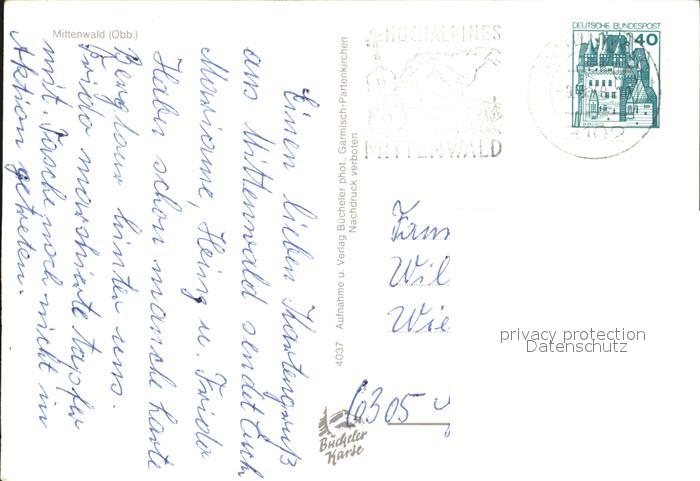 Mittenwald (Obb.)
Einen lieben Kartengruß
aus Mittenwald sendet Euch
Marianne, Heinz u. Frida
Haben schon manche harte
Bergtour hinter uns.
Frida marschierte tapfer
mit. Tasche noch nicht in
Aktion getreten.
4037 Aufnahme u. Verlag Bücheler phot., Garmisch-Partenkirchen
Nachdruck verboten
Bücheler
Karte
HOCHALPINES
MITTENWALD
DEUTSCHE BUNDESPOST
40
8102
Fam
Wil
Wie
6305
privacy protection
Datenschutz